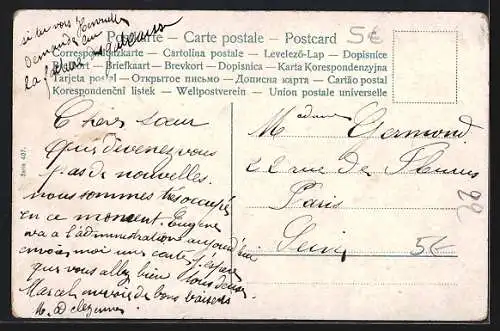 si tu vois
demande
la
Postkarte - Carte postale - Postcard
5€
Correspondenzkarte - Cartolina postale - Levelező-Lap - Dopisnice
Briefkaart - Brevkort - Dopisnica - Karta Korespondenzyjna
Tarjeta postal - Открытое письмо - Дописна карта - Cartão postal
Korespondenční listek - Weltpostverein - Union postale universelle
Serie 407.
Chers sœur
Que devenez vous
pas de nouvelles.
nous sommes très occupés
en ce moment. Eugène
va a l'administration aujourd'hui
envois moi une carte j'espère
que vous allez bien tous deux
Marcel envoie de bons baisers
M.
Madame Germond
22 rue de Fleurus
Paris
Seine
5€
22